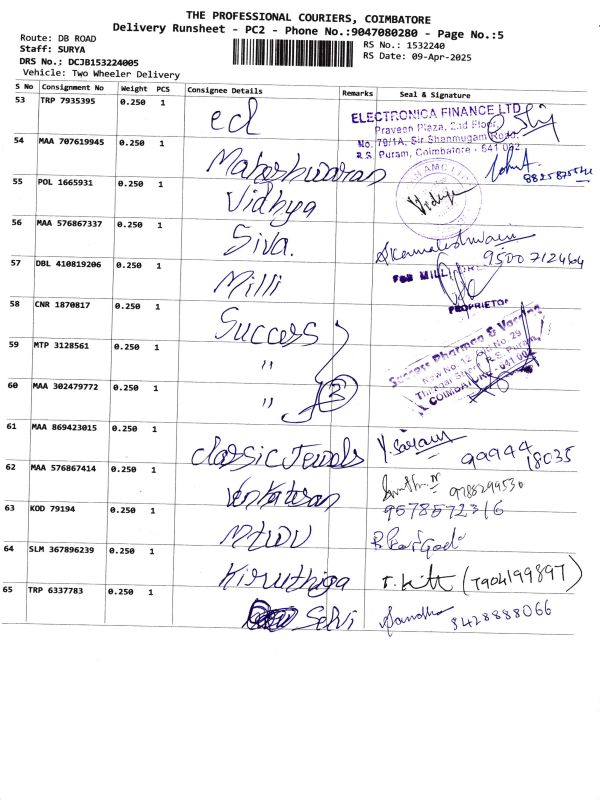 THE PROFESSIONAL COURIERS, COIMBATORE
Delivery Runsheet - PC2 - Phone No.:9047080280 - Page No.:5
Route: DB ROAD
RS No.: 1532240
Staff: SURYA
RS Date: 09-Apr-2025
DRS No.: DCJB153224005
Vehicle: Two Wheeler Delivery
S No Consignment No Weight PCS Consignee Details Remarks Seal & Signature
53 TRP 7935395 0.250 1 ecl
ELECTRONICA FINANCE LTD
Praveen Plaza, 2nd Floor,
No. 79/1A, Sir Shanmugam Road,
R.S. Puram, Coimbatore - 641 002
54 MAA 707619945 0.250 1 Maheshwaran
55 POL 1665931 0.250 1 Vidhya Vidhya
56 MAA 576867337 0.250 1 Siva. 9500712464
57 DBL 410819206 0.250 1 Milli
FOR MILLI
PROPRIETOR
58 CNR 1870817 0.250 1 Success
Success Pharma &
New No. 12 Old No. 29
R.S. Puram,
COIMBATORE - 641 002
59 MTP 3128561 0.250 1 "
60 MAA 302479772 0.250 1 " 3
61 MAA 869423015 0.250 1 classic Jewels 99944 18035
62 MAA 576867414 0.250 1 Venkatesan 9788299530
63 KOD 79194 0.250 1 9578572316
64 SLM 367896239 0.250 1 Kiruthiga (7904199897)
65 TRP 6337783 0.250 1 Selvi 8428888066